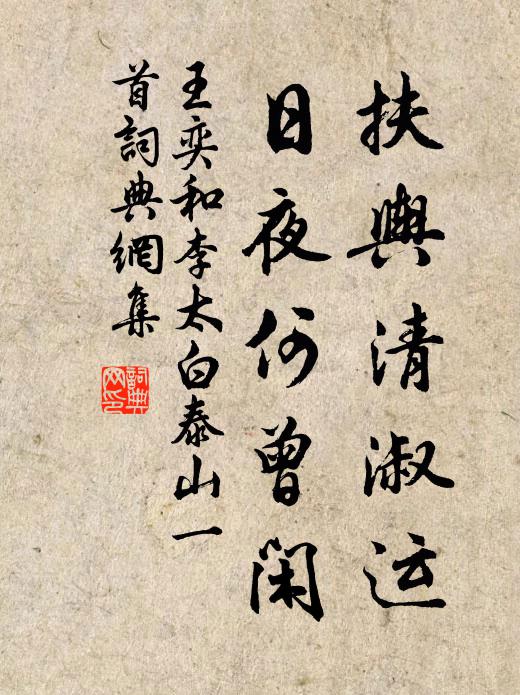 扶輿清淑运
日夜何曾閑
王奕和李太白泰山一
首詞典網集
詞典
网印